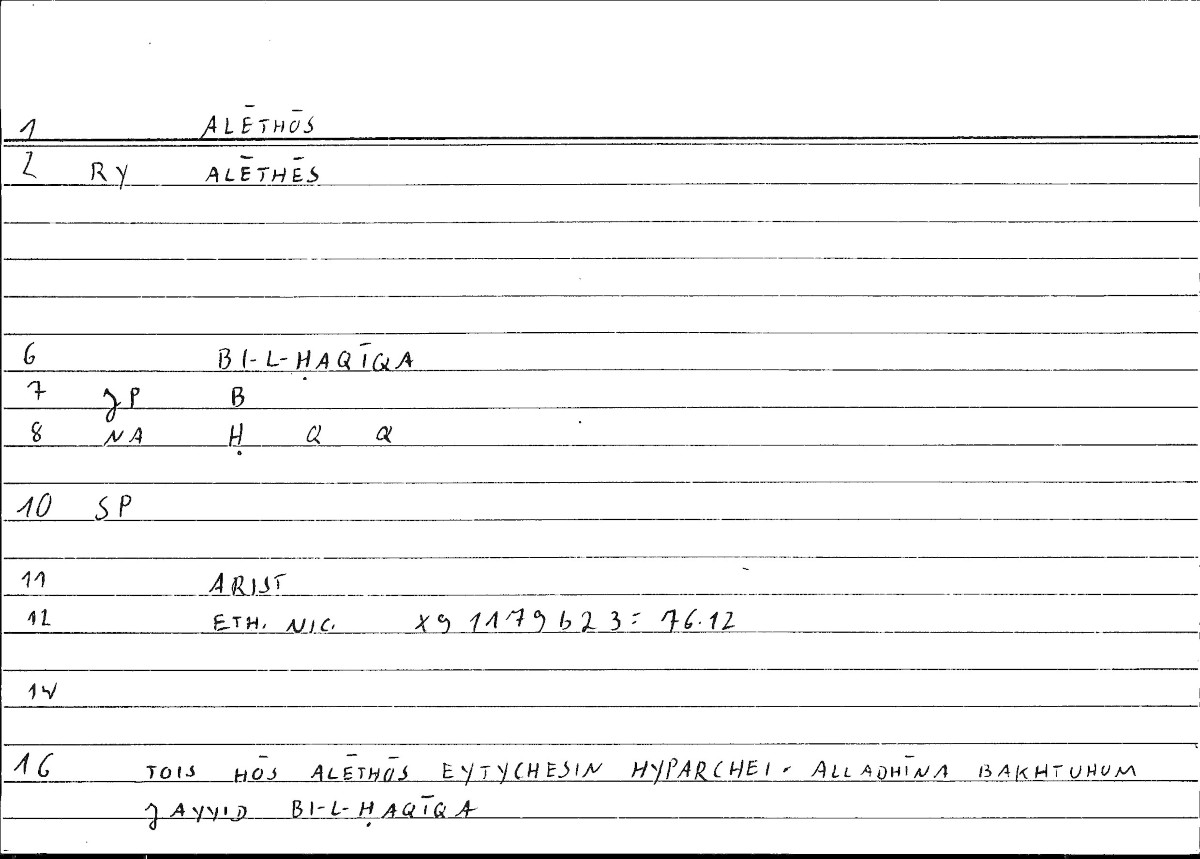 1 ALĒTHŌS
2 RY ALĒTHĒS
6 BI-L-ḤAQĪQA
7 JP B
8 NA Ḥ Q Q
10 SP
11 ARIST
12 ETH. NIC. X9 1179b23= 76.12
14
16 TOIS HŌS ALĒTHŌS EYTYCHESIN HYPARCHEI. ALLADHĪNA BAKHTUHUM
JAYYID BI-L-ḤAQĪQA